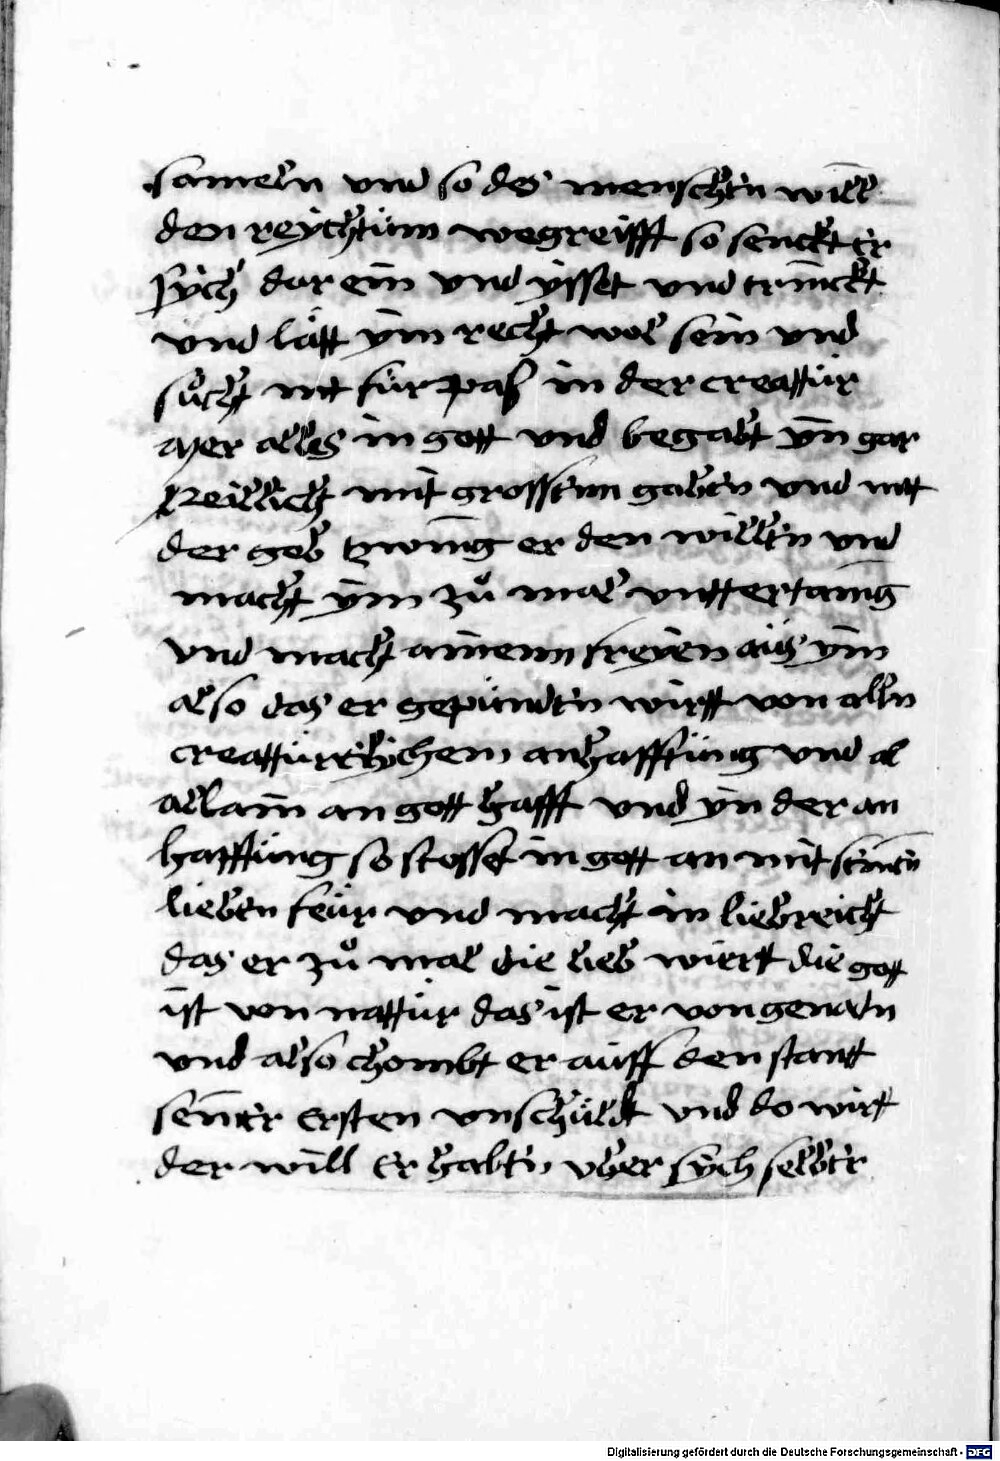 sameln vnd so des menschen will
den reychtum wegreifft so senckt er
sych dar ein vnd ysset vnd trinckt
vnd lätt ym recht wol sein vnd
sücht nit fürpas in der creattur
Mer alles in gott vnd begabt yn gar
Reillich mit grossenn gaben vnd mit
der geb tzwing er den willen vnd
macht ym zů mal vnttertanig
vnd macht ainenn freyen aus ym
also das er gepunden wirtt von alln
creatturlychen anhafftung vnd al
allain an gott hafft vnd yn der an
hafftung so stosset in gott an mit seinen
lieben feür vnd macht in liebreicht
das er zů mal die lieb wirtt die gott
ist von nattur das ist er von genaden
vnd also chombt er auff den stantt
senner ersten vnschuldt vnd do wirtt
der will erhaben vber sych selber
Digitalisierung gefördert durch die Deutsche Forschungsgemeinschaft - DFG